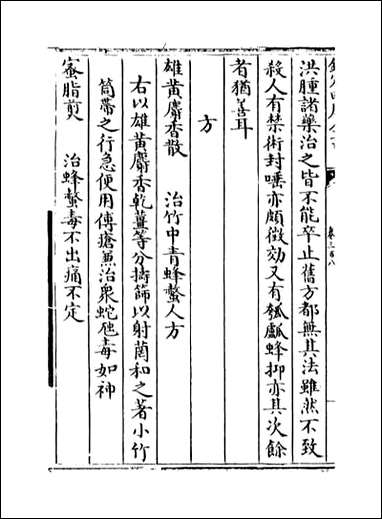 洪腫諸藥治之皆不能卒止舊方都無其法雖然不致
殺人有禁術封唾亦頗徵効又有瓠䤡蜂抑亦其次餘
者猶善耳
方
雄黄麝香散 治竹中青蜂螫人方
右以雄黄麝香乾薑等分擣篩以射菌和之著小竹
筒帶之行急便用傅瘡兼治衆蛇虺毒如神
蜜脂煎 治蜂螫毒不出痛不定
卷三百八